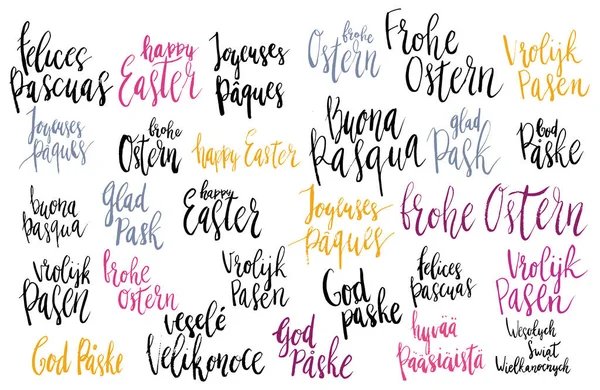 Felices
Pascuas
happy
Easter
Joyeuses
Pâques
frohe
Ostern
Frohe
Ostern
Vrolijk
Pasen
Joyeuses
Pâques
frohe
Ostern
happy Easter
Buona
Pasqua
glad
Pask
God
Påske
buona
pasqua
glad
Pask
happy
Easter
Joyeuses
Pâques
frohe Ostern
Vrolijk
Pasen
frohe
Ostern
Vrolijk
Pasen
God
paske
felices
Pascuas
Vrolijk
Pasen
God Påske
veselé
Velikonoce
God
Påske
hyvää
Pääsiäistä
Wesołych
Świąt
Wielkanocnych